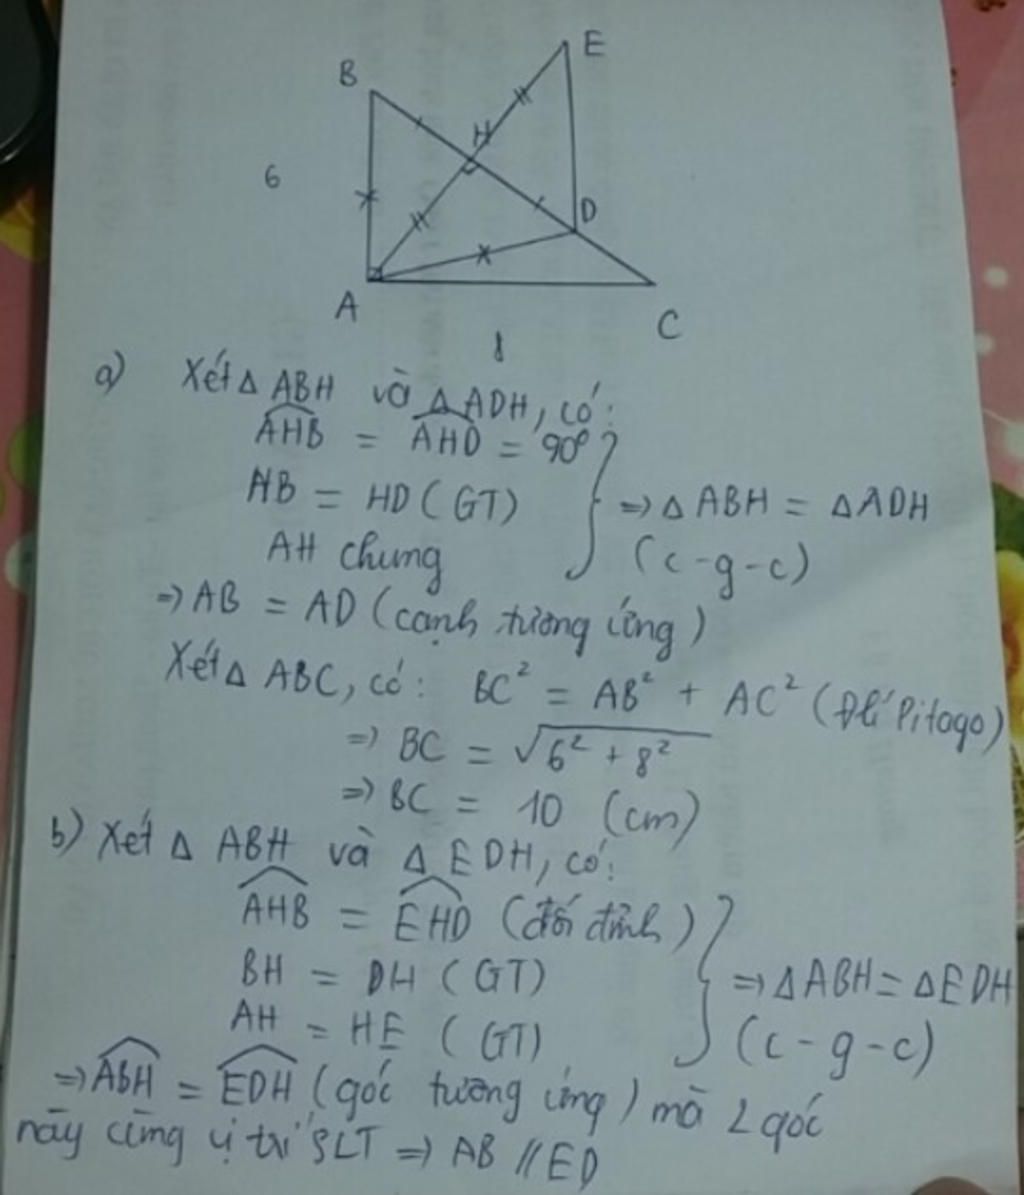 E
B
H
6
D
A
C
8
a) Xét Δ ABH và Δ ADH, có:
AHB = AHD = 90°
HB = HD (GT)
AH chung
⇒ Δ ABH = Δ ADH
(c-g-c)
⇒ AB = AD (cạnh tương ứng)
Xét Δ ABC, có: BC² = AB² + AC² (Đlí Pitago)
⇒ BC = √6² + 8²
⇒ BC = 10 (cm)
b) Xét Δ ABH và Δ EDH, có:
AHB = EHD (đối đỉnh)
BH = DH (GT)
AH = HE (GT)
⇒ Δ ABH = Δ EDH
(c-g-c)
⇒ ABH = EDH (góc tương ứng) mà 2 góc
này cùng vị trí SLT ⇒ AB // ED